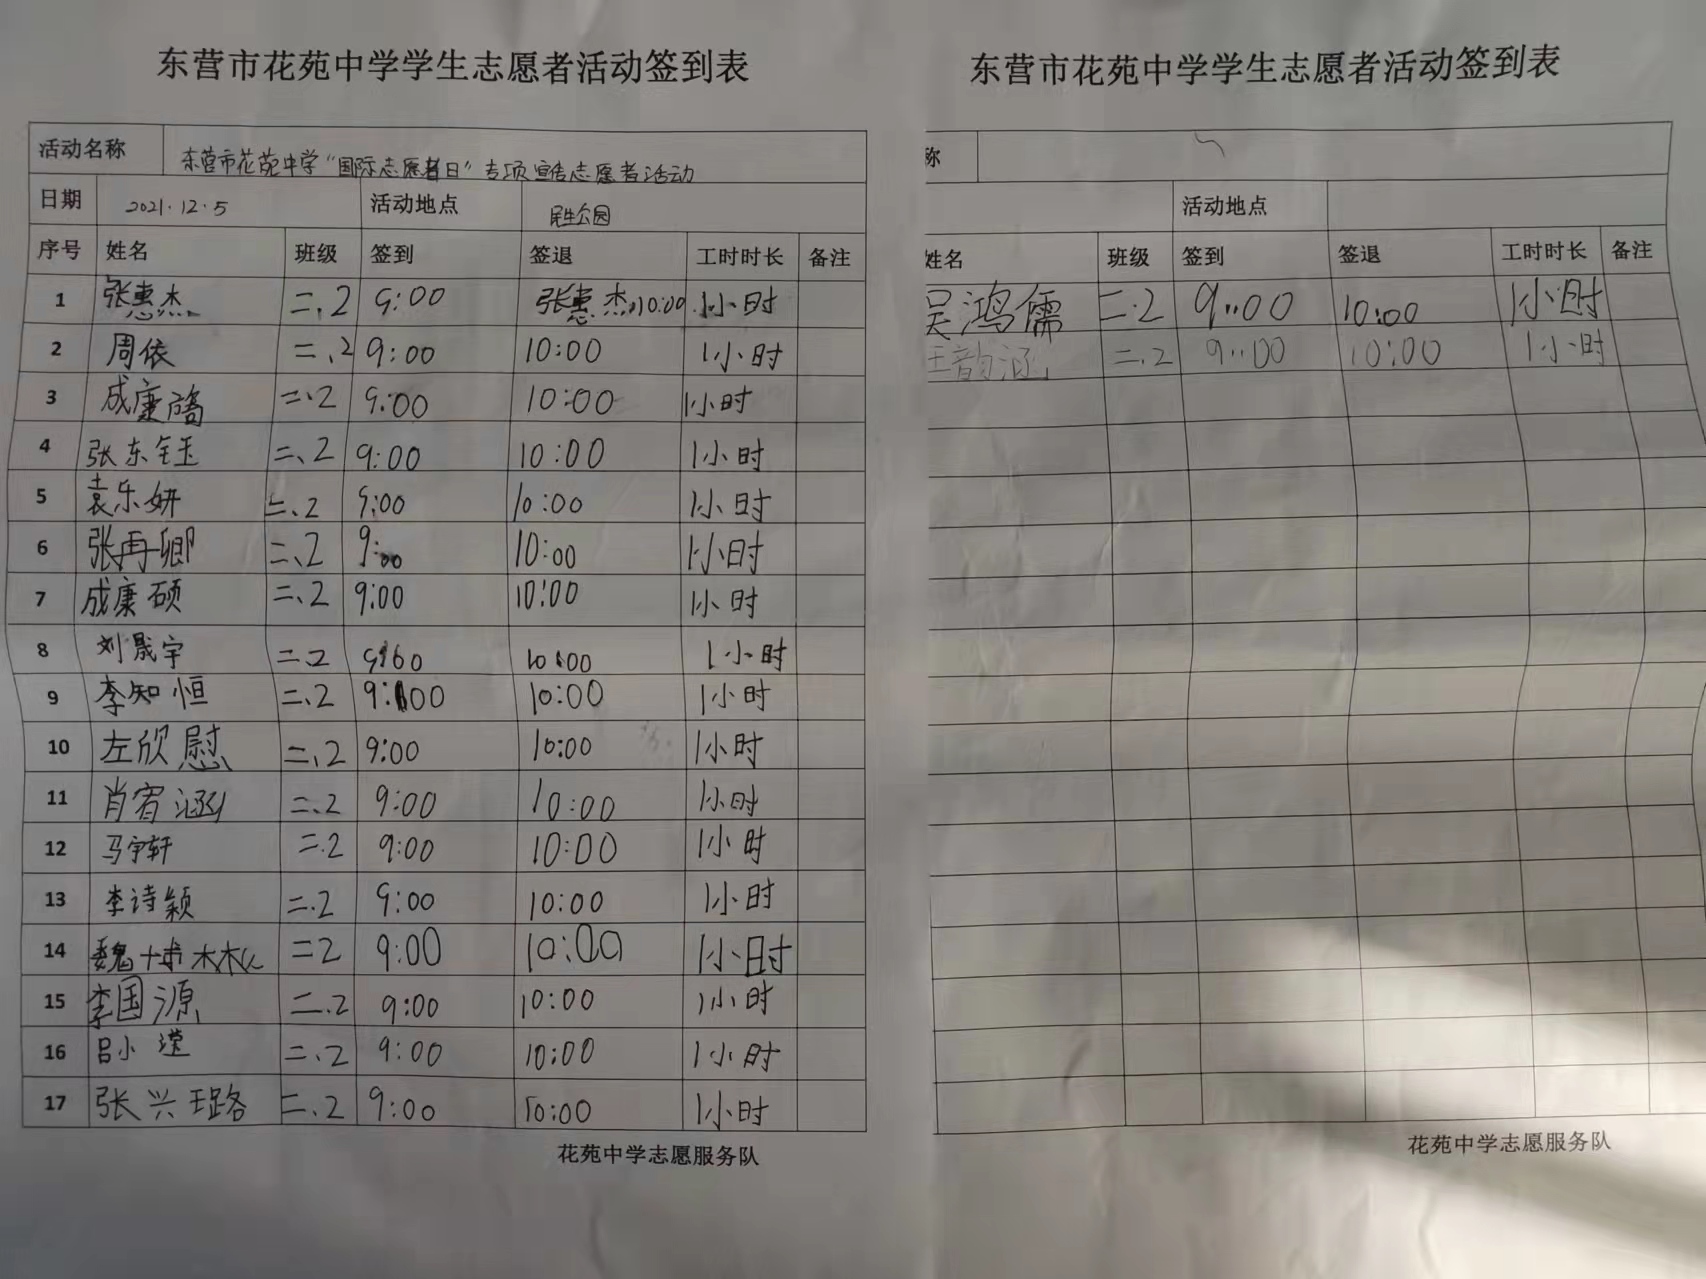 东营市花苑中学学生志愿者活动签到表
活动名称 东营市花苑中学“国际志愿者日”专项宣传志愿者活动
日期 2021.12.5 活动地点 民生公园
序号 姓名 班级 签到 签退 工时时长 备注
1 张惠杰 二、2 9:00 张惠杰10:00 1小时
2 周依 二、2 9:00 10:00 1小时
3 成康 二、2 9:00 10:00 1小时
4 张东钰 二、2 9:00 10:00 1小时
5 袁乐妍 二、2 9:00 10:00 1小时
6 张再卿 二、2 9:00 10:00 1小时
7 成康硕 二、2 9:00 10:00 1小时
8 刘晟宇 二、2 9:00 10:00 1小时
9 李知恒 二、2 9:00 10:00 1小时
10 左欣慰 二、2 9:00 10:00 1小时
11 肖宥涵 二、2 9:00 10:00 1小时
12 马宇轩 二.2 9:00 10:00 1小时
13 李诗颖 二.2 9:00 10:00 1小时
14 魏博 二2 9:00 10:00 1小时
15 李国源 二.2 9:00 10:00 1小时
16 吕小滢 二、2 9:00 10:00 1小时
17 张兴璐 二、2 9:00 10:00 1小时
花苑中学志愿服务队
东营市花苑中学学生志愿者活动签到表
称
活动地点
姓名 班级 签到 签退 工时时长 备注
吴鸿儒 二.2 9:00 10:00 1小时
王韵涵 二.2 9:00 10:00 1小时
花苑中学志愿服务队